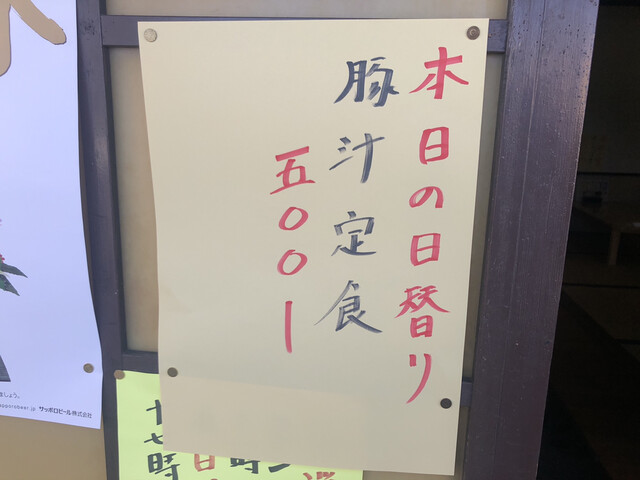 本日の日替り
豚汁定食
五〇〇ー
サッポロビール株式会社
十七時
日
時